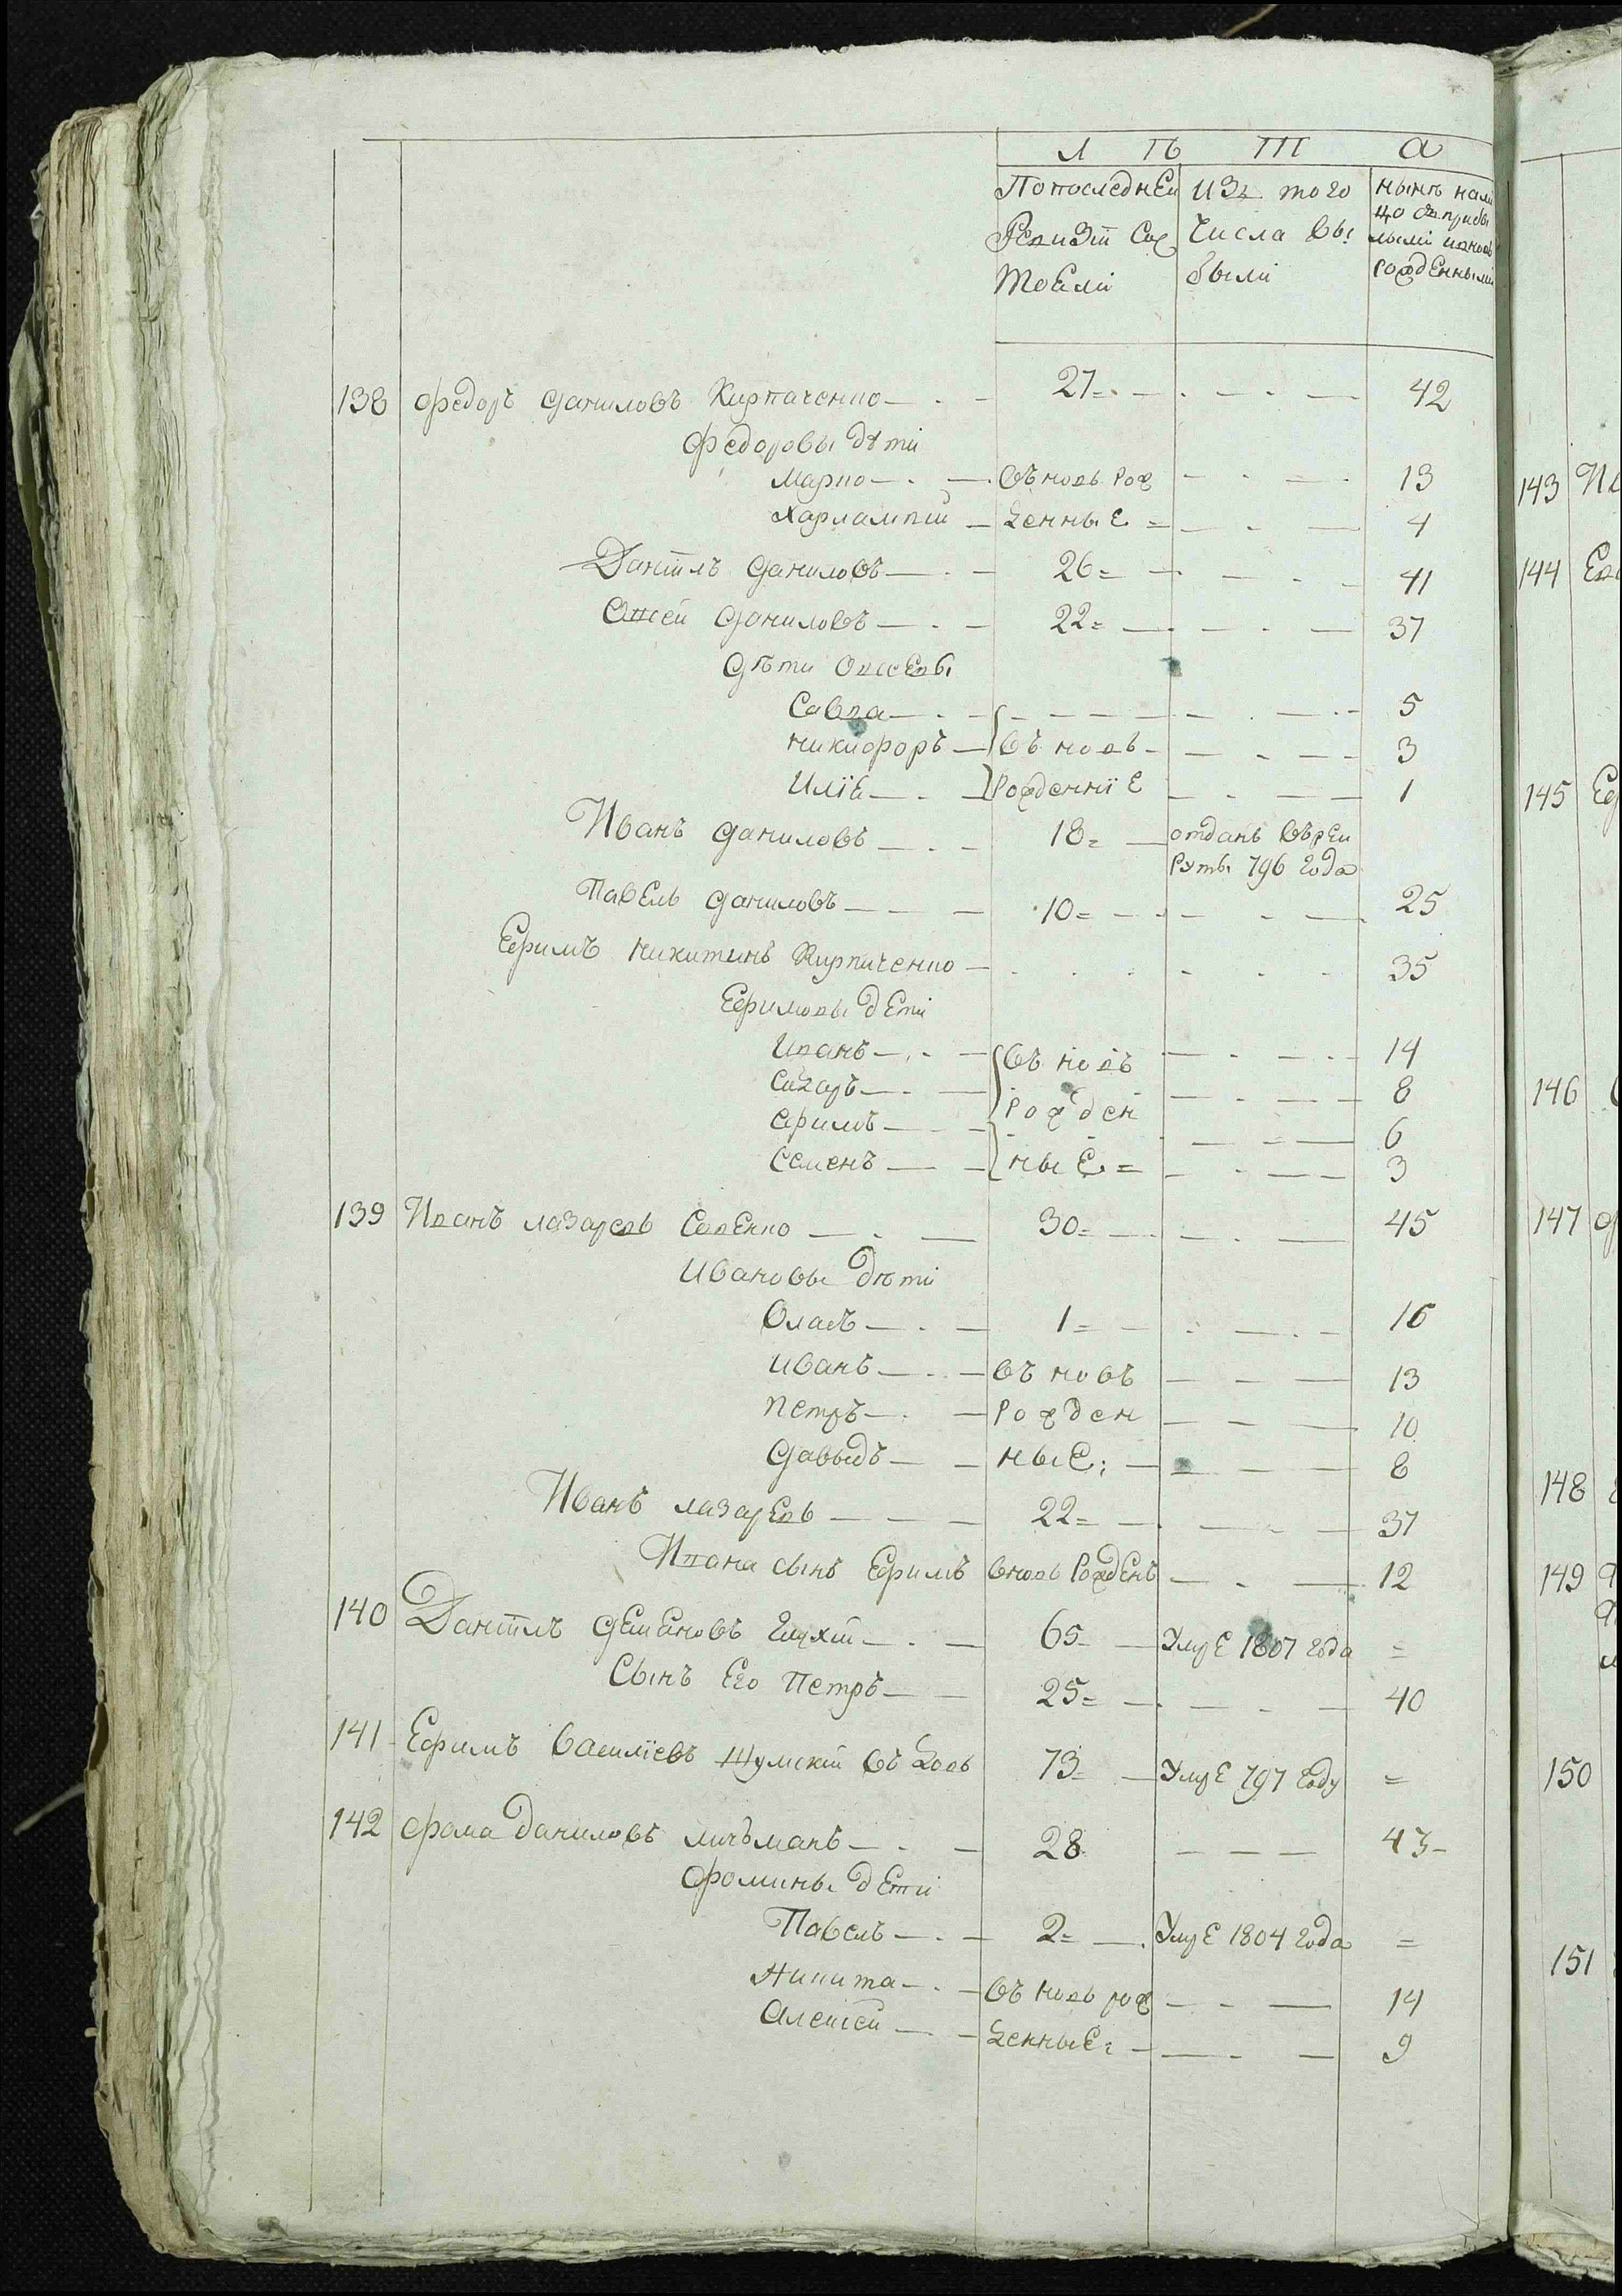 Л Ѣ Т А
По последнеи изъ того нынѣ нали
Ревизіи Сос числа вы цо съприбы
тоели были лыми ивновь
рожденными
138 Федоръ Даниловъ Кирпаченко 27 42
Федоровы дѣти
Марко въ новь рож 13
Харлампій денные 4
Даніилъ Даниловъ 26 41
Даниловъ 22 37
Дѣти
Савва 5
Никифоръ въ новь 3
Илія рожденніе 1
Иванъ Даниловъ 18 отданъ въ рек
руты 796 года
Павелъ Даниловъ 10 25
Ефимъ Никитинъ Кирпиченко 35
Ефимовы дети
Иванъ въ новь 14
8
Ефимъ рожден 6
Семенъ ные 3
139 Иванъ Лазаревъ Савенко 30 45
Ивановы дѣти
Власъ 1 16
Иванъ въ новъ 13
Петръ рожден 10
Давыдъ ные 8
Иванъ Лазаревъ 22 37
Ивана сынъ Ефимъ вновь рожденъ 12
140 Даніилъ Демяновъ Глухій 65 Умре 1807 года =
Сынъ Его Петръ 25 40
141 Ефимъ Василіевъ Шумскій въ довъ 73 Умре 797 году =
142 Фома Даниловъ Личъманъ 28 43
Фомины дети
Павелъ 2 Умре 1804 года =
Никита въ новь рож 14
Алексей денные 9
143
144
145
146
147
148
149
150
151